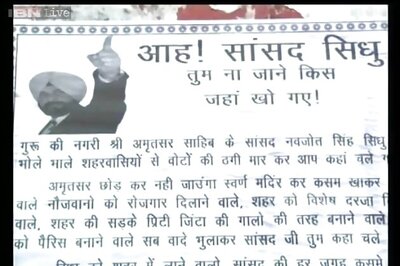 IBN Live
आह! सांसद सिधु
तुम ना जाने किस
जहां खो गए!
गुरू की नगरी श्री अमृतसर साहिब के सांसद नवजोत सिंह सिधु
भोले भाले शहरवासियों से वोटों की ठगी मार कर आप कहां चले
अमृतसर छोड कर नही जाउंगा स्वर्ण मंदिर कर कसम खाकर
वाले नौजवानो को रोजगार दिलाने वाले, शहर को विशेष दरजा
वाले, शहर की सडके प्रिटी जिंटा की गालो की तरह बनाने वाले
को पैरिस बनाने वाले सब वादे भुलाकर सांसद जी तुम कहा चले